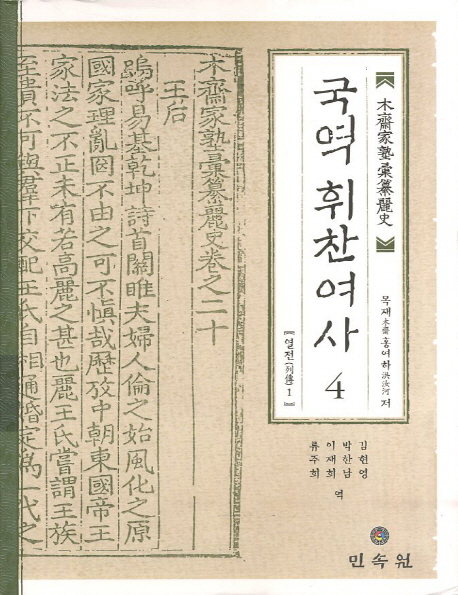 木齋家塾彙纂麗史
국역 휘찬여사 4
목재木齋 홍여하洪汝河 저
【열전(列傳) 1】
김현영
박한남
이재희
류주희
역
민속원
木齋家塾彙纂麗史卷之二十
王后
嗚呼易基乾坤詩首關雎夫婦人倫之始風化之原
國家理亂罔不由之可不慎哉歷攷中朝東國帝王
家法之不正未有若高麗之甚也麗王氏嘗謂王族
至貴不可與羣下交配王氏自相通婚定爲一代之